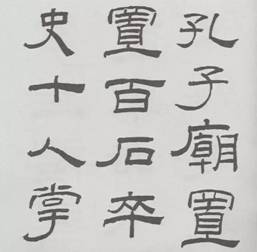 孔子廟置
置百石卒
史十人掌